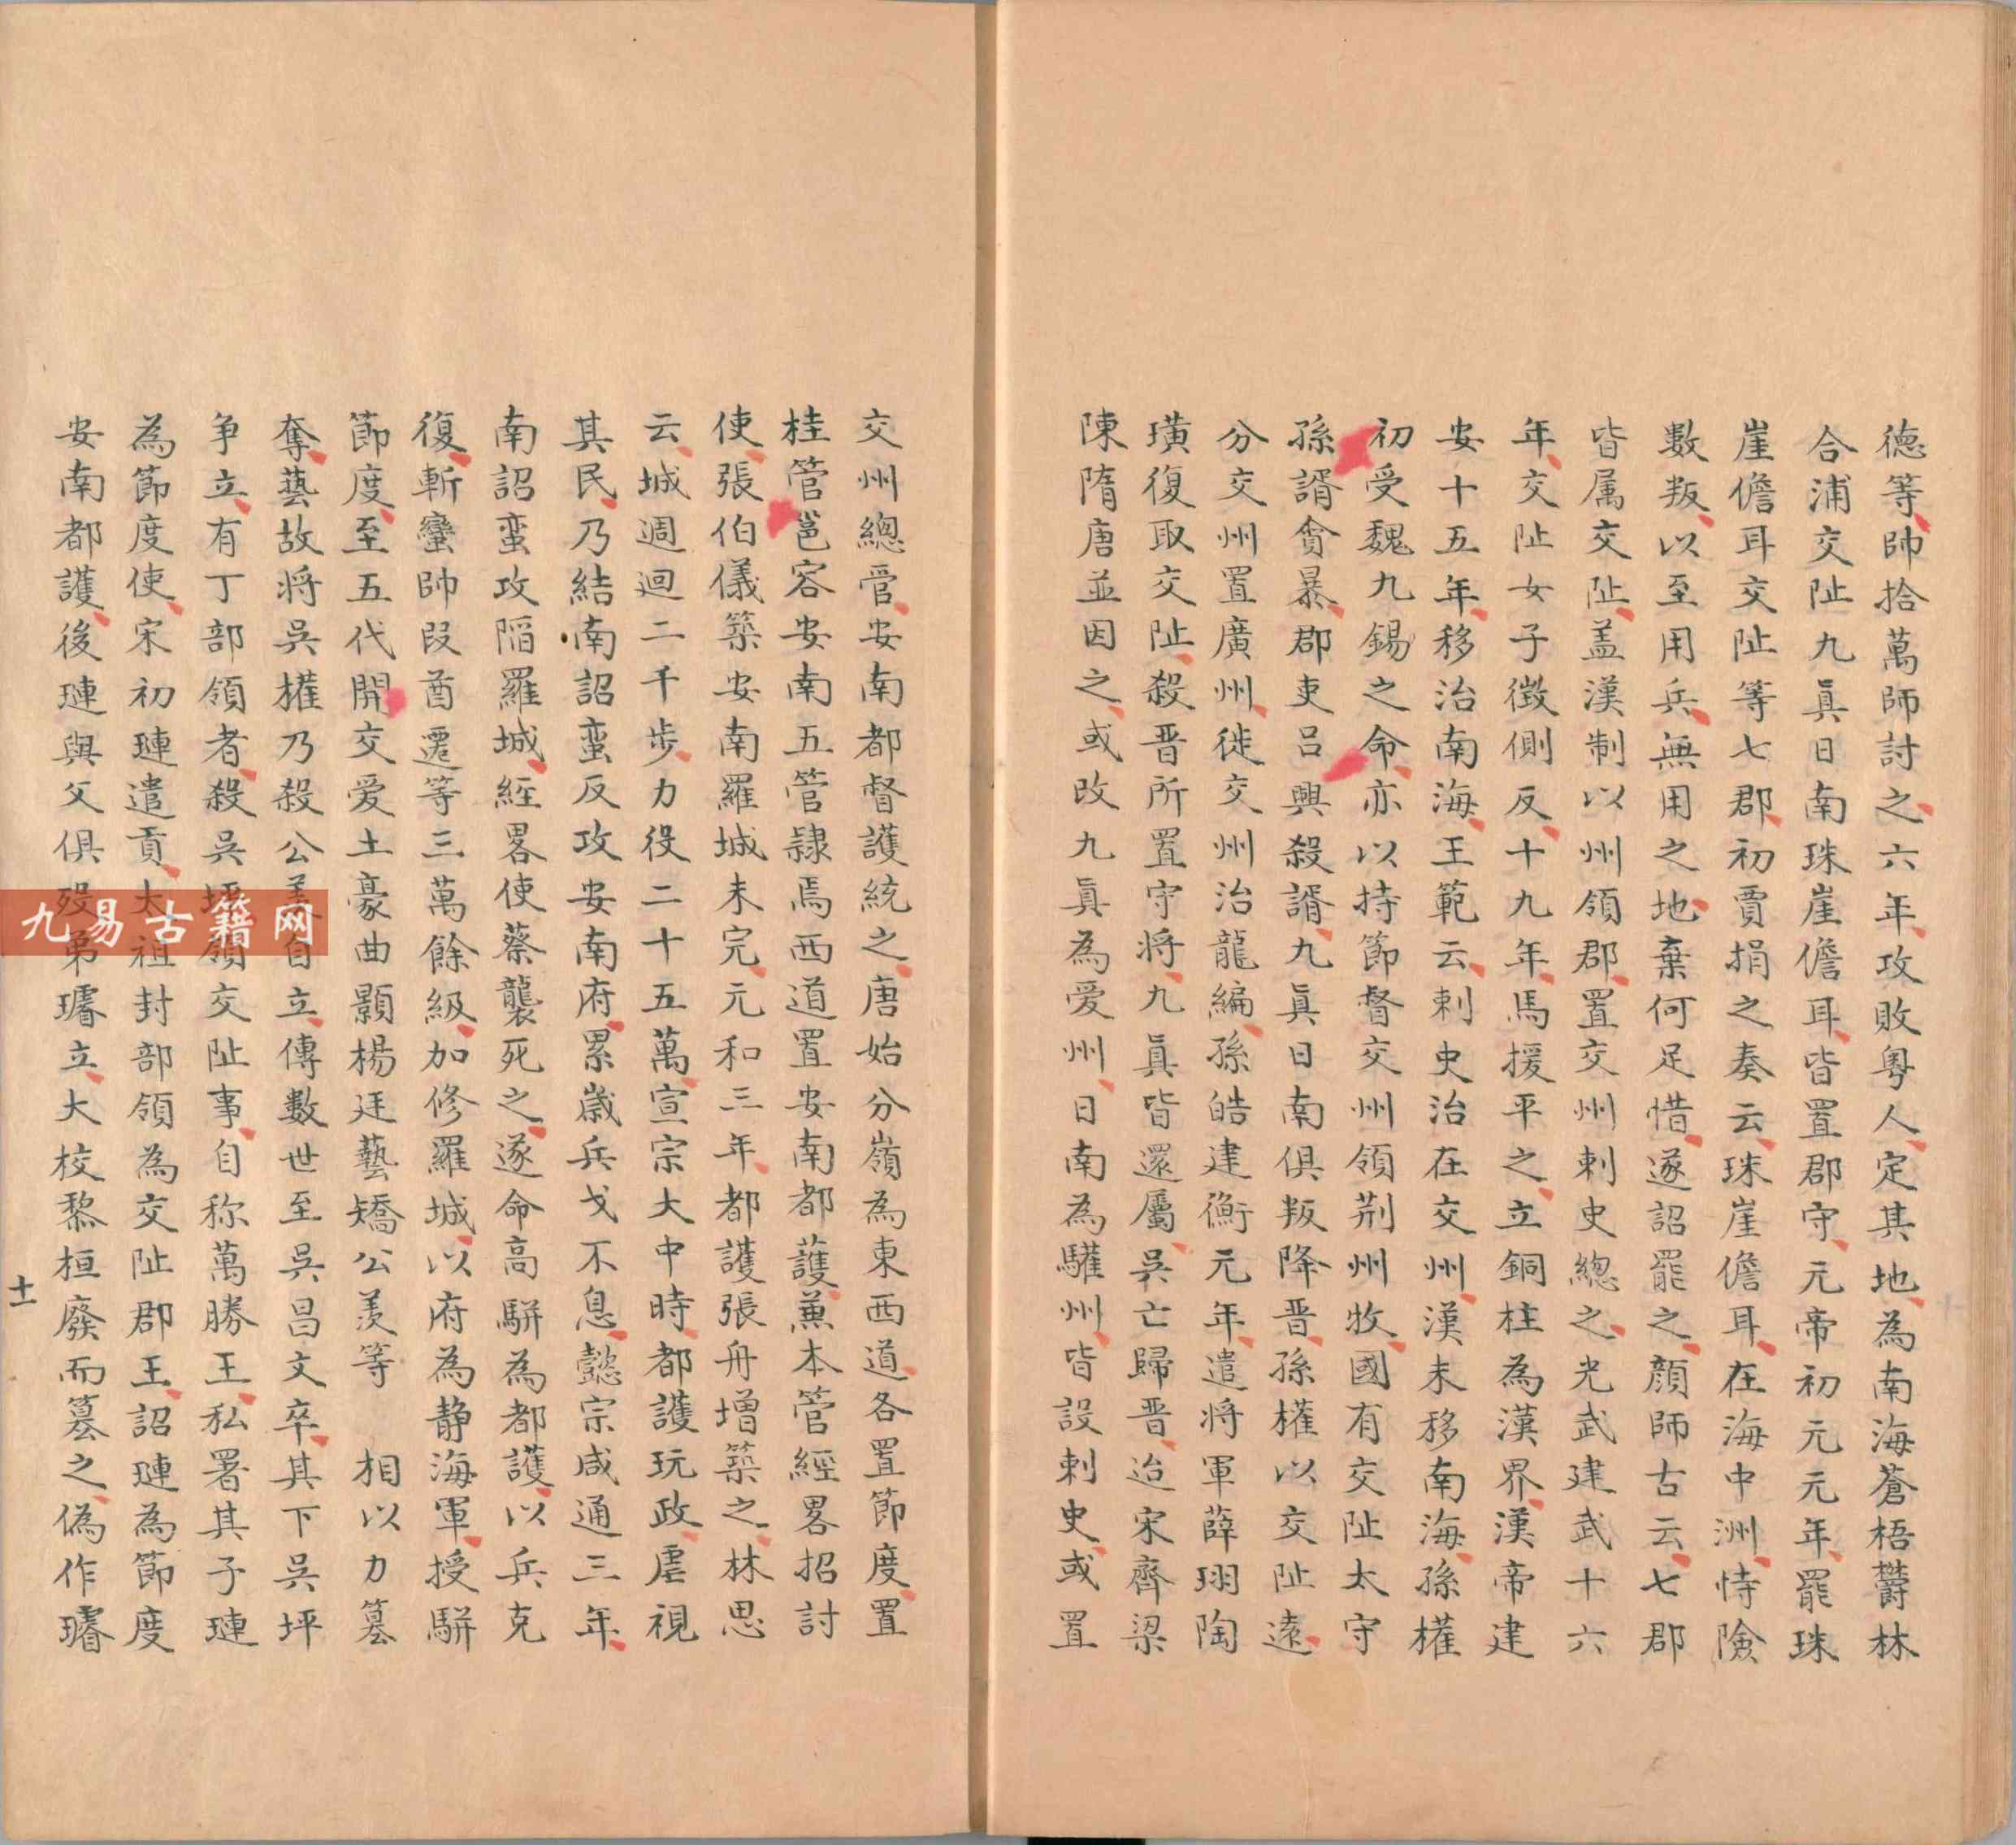 德等帥拾萬師討之六年攻敗粵人定其地為南海蒼梧欝林
合浦交阯九眞日南珠崖儋耳皆置郡守元帝初元元年罷珠
崖儋耳交阯等七郡初賈捐之奏云珠崖儋耳在海中洲恃險
數叛以至用兵無用之地棄何足惜遂詔罷之顔師古云七郡
皆属交阯盖漢制以州領郡置交州刺史總之光武建武十六
年交阯女子徵側反十九年馬援平之立銅柱為漢界漢帝建
安十五年移治南海王範云刺史治在交州漢末移南海孫權
初受魏九錫之命亦以持節督交州領荊州牧國有交阯太守
孫諝貪暴郡吏呂興殺諝九眞日南俱叛降晋孫權以交阯遠
分交州置廣州徙交州治龍編孫皓建衡元年遣將軍薛珝陶
璜復取交阯殺晋所置守將九眞皆還屬吳亡歸晋迨宋齊梁
陳隋唐並因之或改九眞為愛州日南為驩州皆設刺史或置
交州總管安南都督護統之唐始分嶺為東西道各置節度置
桂管邕容安南五管隷焉西道置安南都護蕙本管經畧招討
使張伯儀築安南羅城未完元和三年都護張舟增築之林思
云城週迴二千步力役二十五萬宣宗大中時都護玩政虐視
其民乃結南詔蛮反攻安南府累歲兵戈不息懿宗咸通三年
南詔蛮攻陷羅城經畧使蔡襲死之遂命高駢為都護以兵克
復斬蠻帥段酋遷等三萬餘級加修羅城以府為静海軍授駢
節度至五代開交爱土豪曲顥楊廷藝矯公羨等 相以力簒
奪藝故将吳權乃殺公羨自立傳數世至吳昌文卒其下吳坪
争立有丁部領者殺吳坪領交阯事自称萬勝王私署其子璉
為節度使宋初璉遣貢太祖封部領為交阯郡王詔璉為節度
安南都護後璉與父俱殁弟璿立大校黎桓廢而簒之偽作璿
十一
九易古籍网